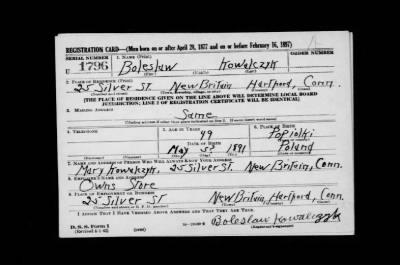 REGISTRATION CARD—(Men born on or after April 28, 1877 and on or before February 16, 1897)
SERIAL NUMBER 1. NAME (Print) ORDER NUMBER
U 1796 Boleslaw Kowalczyk
(First) (Middle) (Last)
2. PLACE OF RESIDENCE (Print)
25 Silver St. New Britain Hartford, Conn.
[THE PLACE OF RESIDENCE GIVEN ON THE LINE ABOVE WILL DETERMINE LOCAL BOARD
JURISDICTION; LINE 2 OF REGISTRATION CERTIFICATE WILL BE IDENTICAL]
3. MAILING ADDRESS
Same
[Mailing address if other than place indicated on line 2. If same insert word same]
4. TELEPHONE 5. AGE IN YEARS 6. PLACE OF BIRTH
49 Popiolki
DATE OF BIRTH
May 5 1891 Poland
7. NAME AND ADDRESS OF PERSON WHO WILL ALWAYS KNOW YOUR ADDRESS
Mary Kowalczyk, 25 Silver St. New Britain, Conn.
8. EMPLOYER'S NAME AND ADDRESS
Owns Store
9. PLACE OF EMPLOYMENT OR BUSINESS
25 Silver St New Britain, Hartford, Conn.
I AFFIRM THAT I HAVE VERIFIED ABOVE ANSWERS AND THAT THEY ARE TRUE.
D. S. S. Form 1
(Revised 4-1-42) (over) Boleslaw Kowalczyk